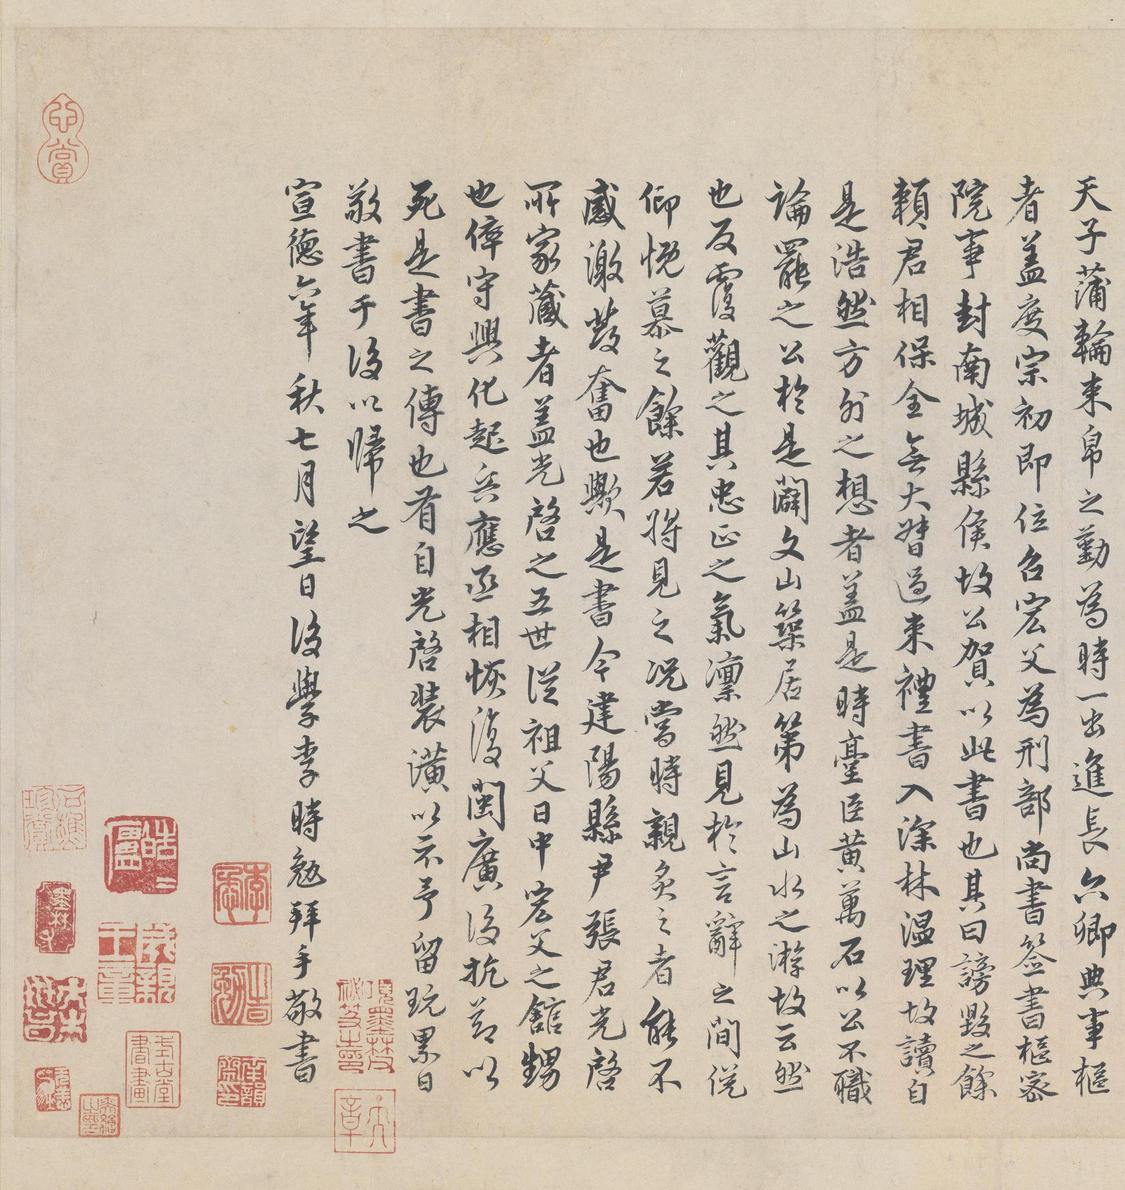 天子蒲輪束帛之勤為時一出進長六卿典事樞
者蓋度宗初即位召宏父為刑部尚書簽書樞密
院事封南城縣侯故公賀以此書也其曰謗毀之餘
賴君相保全無大朁過來禮書入深林温理故讀自
是浩然方外之想者蓋是時臺臣黄萬石以公不職
論罷之公於是闢文山築居第為山水之游故云然
也反覆觀之其忠正之氣凛然見於言辭之間俛
仰悅慕之餘若將見之况當時親炙之者能不
感激發奮也歟是書今建陽縣尹張君光啓
所家藏者蓋光啓之五世從祖父日中宏父之館甥
也倅守興化起兵應丞相恢復閩廣後抗節以
死是書之傳也有自光啓裝潢以示予留玩累日
敬書于後以歸之
宣德六年秋七月望日後學李時勉拜手敬書